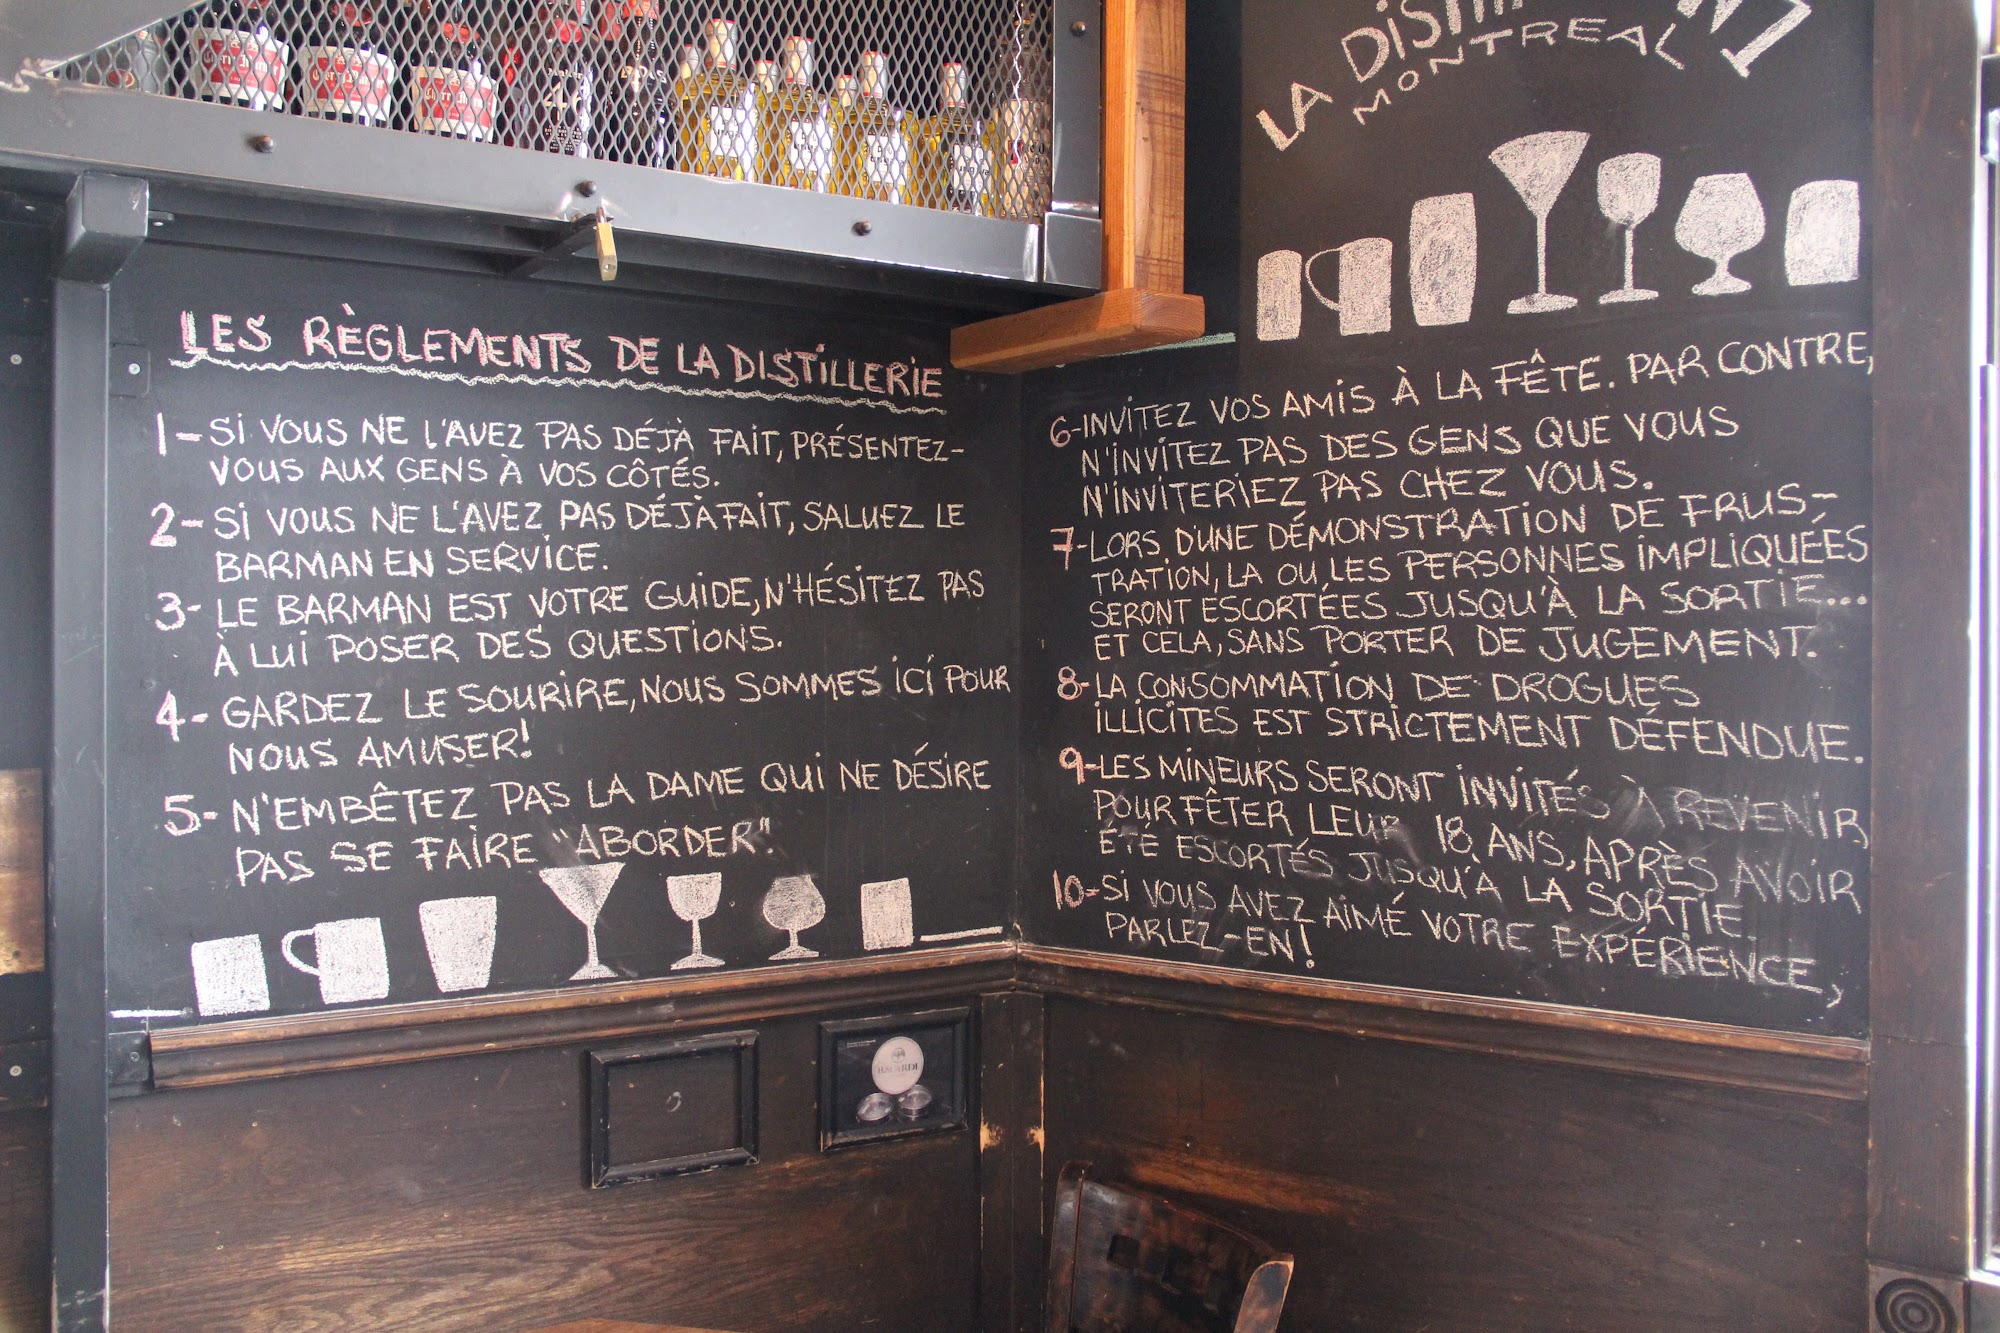 LES RÈGLEMENTS DE LA DISTILLERIE
1- SI VOUS NE L'AVEZ PAS DÉJÀ FAIT, PRÉSENTEZ-
VOUS AUX GENS À VOS CÔTÉS.
2- SI VOUS NE L'AVEZ PAS DÉJÀ FAIT, SALUEZ LE
BARMAN EN SERVICE.
3- LE BARMAN EST VOTRE GUIDE, N'HÉSITEZ PAS
À LUI POSER DES QUESTIONS.
4- GARDEZ LE SOURIRE, NOUS SOMMES ICI POUR
NOUS AMUSER!
5- N'EMBÊTEZ PAS LA DAME QUI NE DÉSIRE
PAS SE FAIRE "ABORDER".
LA
MONTREAL
6- INVITEZ VOS AMIS À LA FÊTE. PAR CONTRE,
N'INVITEZ PAS DES GENS QUE VOUS
N'INVITERIEZ PAS CHEZ VOUS.
7- LORS D'UNE DÉMONSTRATION DE FRUS-
TRATION, LA OU LES PERSONNES IMPLIQUÉES
SERONT ESCORTÉES JUSQU'À LA SORTIE...
ET CELA, SANS PORTER DE JUGEMENT.
8- LA CONSOMMATION DE DROGUES
ILLICITES EST STRICTEMENT DÉFENDUE.
9- LES MINEURS SERONT INVITÉS À REVENIR
POUR FÊTER LEUR 18 ANS, APRÈS AVOIR
ÉTÉ ESCORTÉS JUSQU'À LA SORTIE.
10- SI VOUS AVEZ AIMÉ VOTRE EXPÉRIENCE,
PARLEZ-EN!
BACARDI